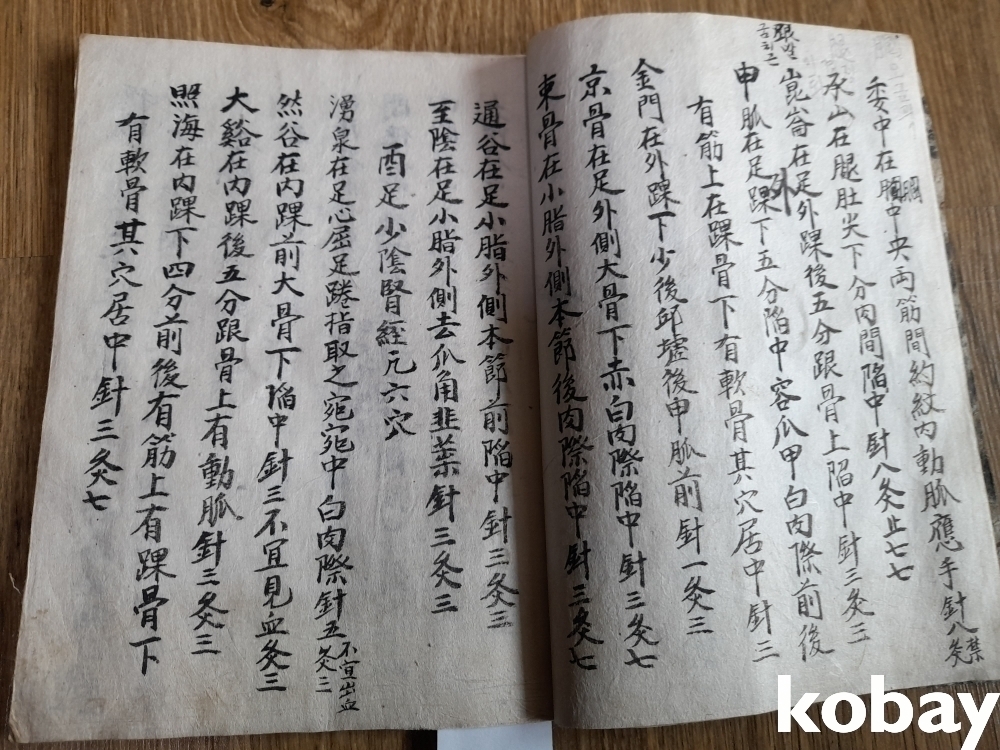 委中在膕中央両筋間約紋內動脈應手針八禁灸
膕
承山在腿肚尖下分肉間陷中針八灸止七七
崑崙在足外踝後五分跟骨上陷中針三灸三
跟발
금치근
申脈在足外踝下五分陷中容爪甲白肉際前後
有筋上在踝骨下有軟骨其穴居中針三
金門在外踝下少後邱墟後申脈前針一灸三
京骨在足外側大骨下赤白肉際陷中針三灸七
束骨在小脂外側本節後肉際陷中針三灸七
通谷在足小脂外側本節前陷中針三灸三
至陰在足小脂外側去爪角韭葉針三灸三
酉足少陰腎經凡六穴
湧泉在足心屈足踡指取之宛宛中白肉際針五不宜出血灸三
然谷在內踝前大骨下陷中針三不宜見血灸三
大谿在內踝後五分跟骨上有動脈針三灸三
照海在內踝下四分前後有筋上有踝骨下
有軟骨其穴居中針三灸七
kobay